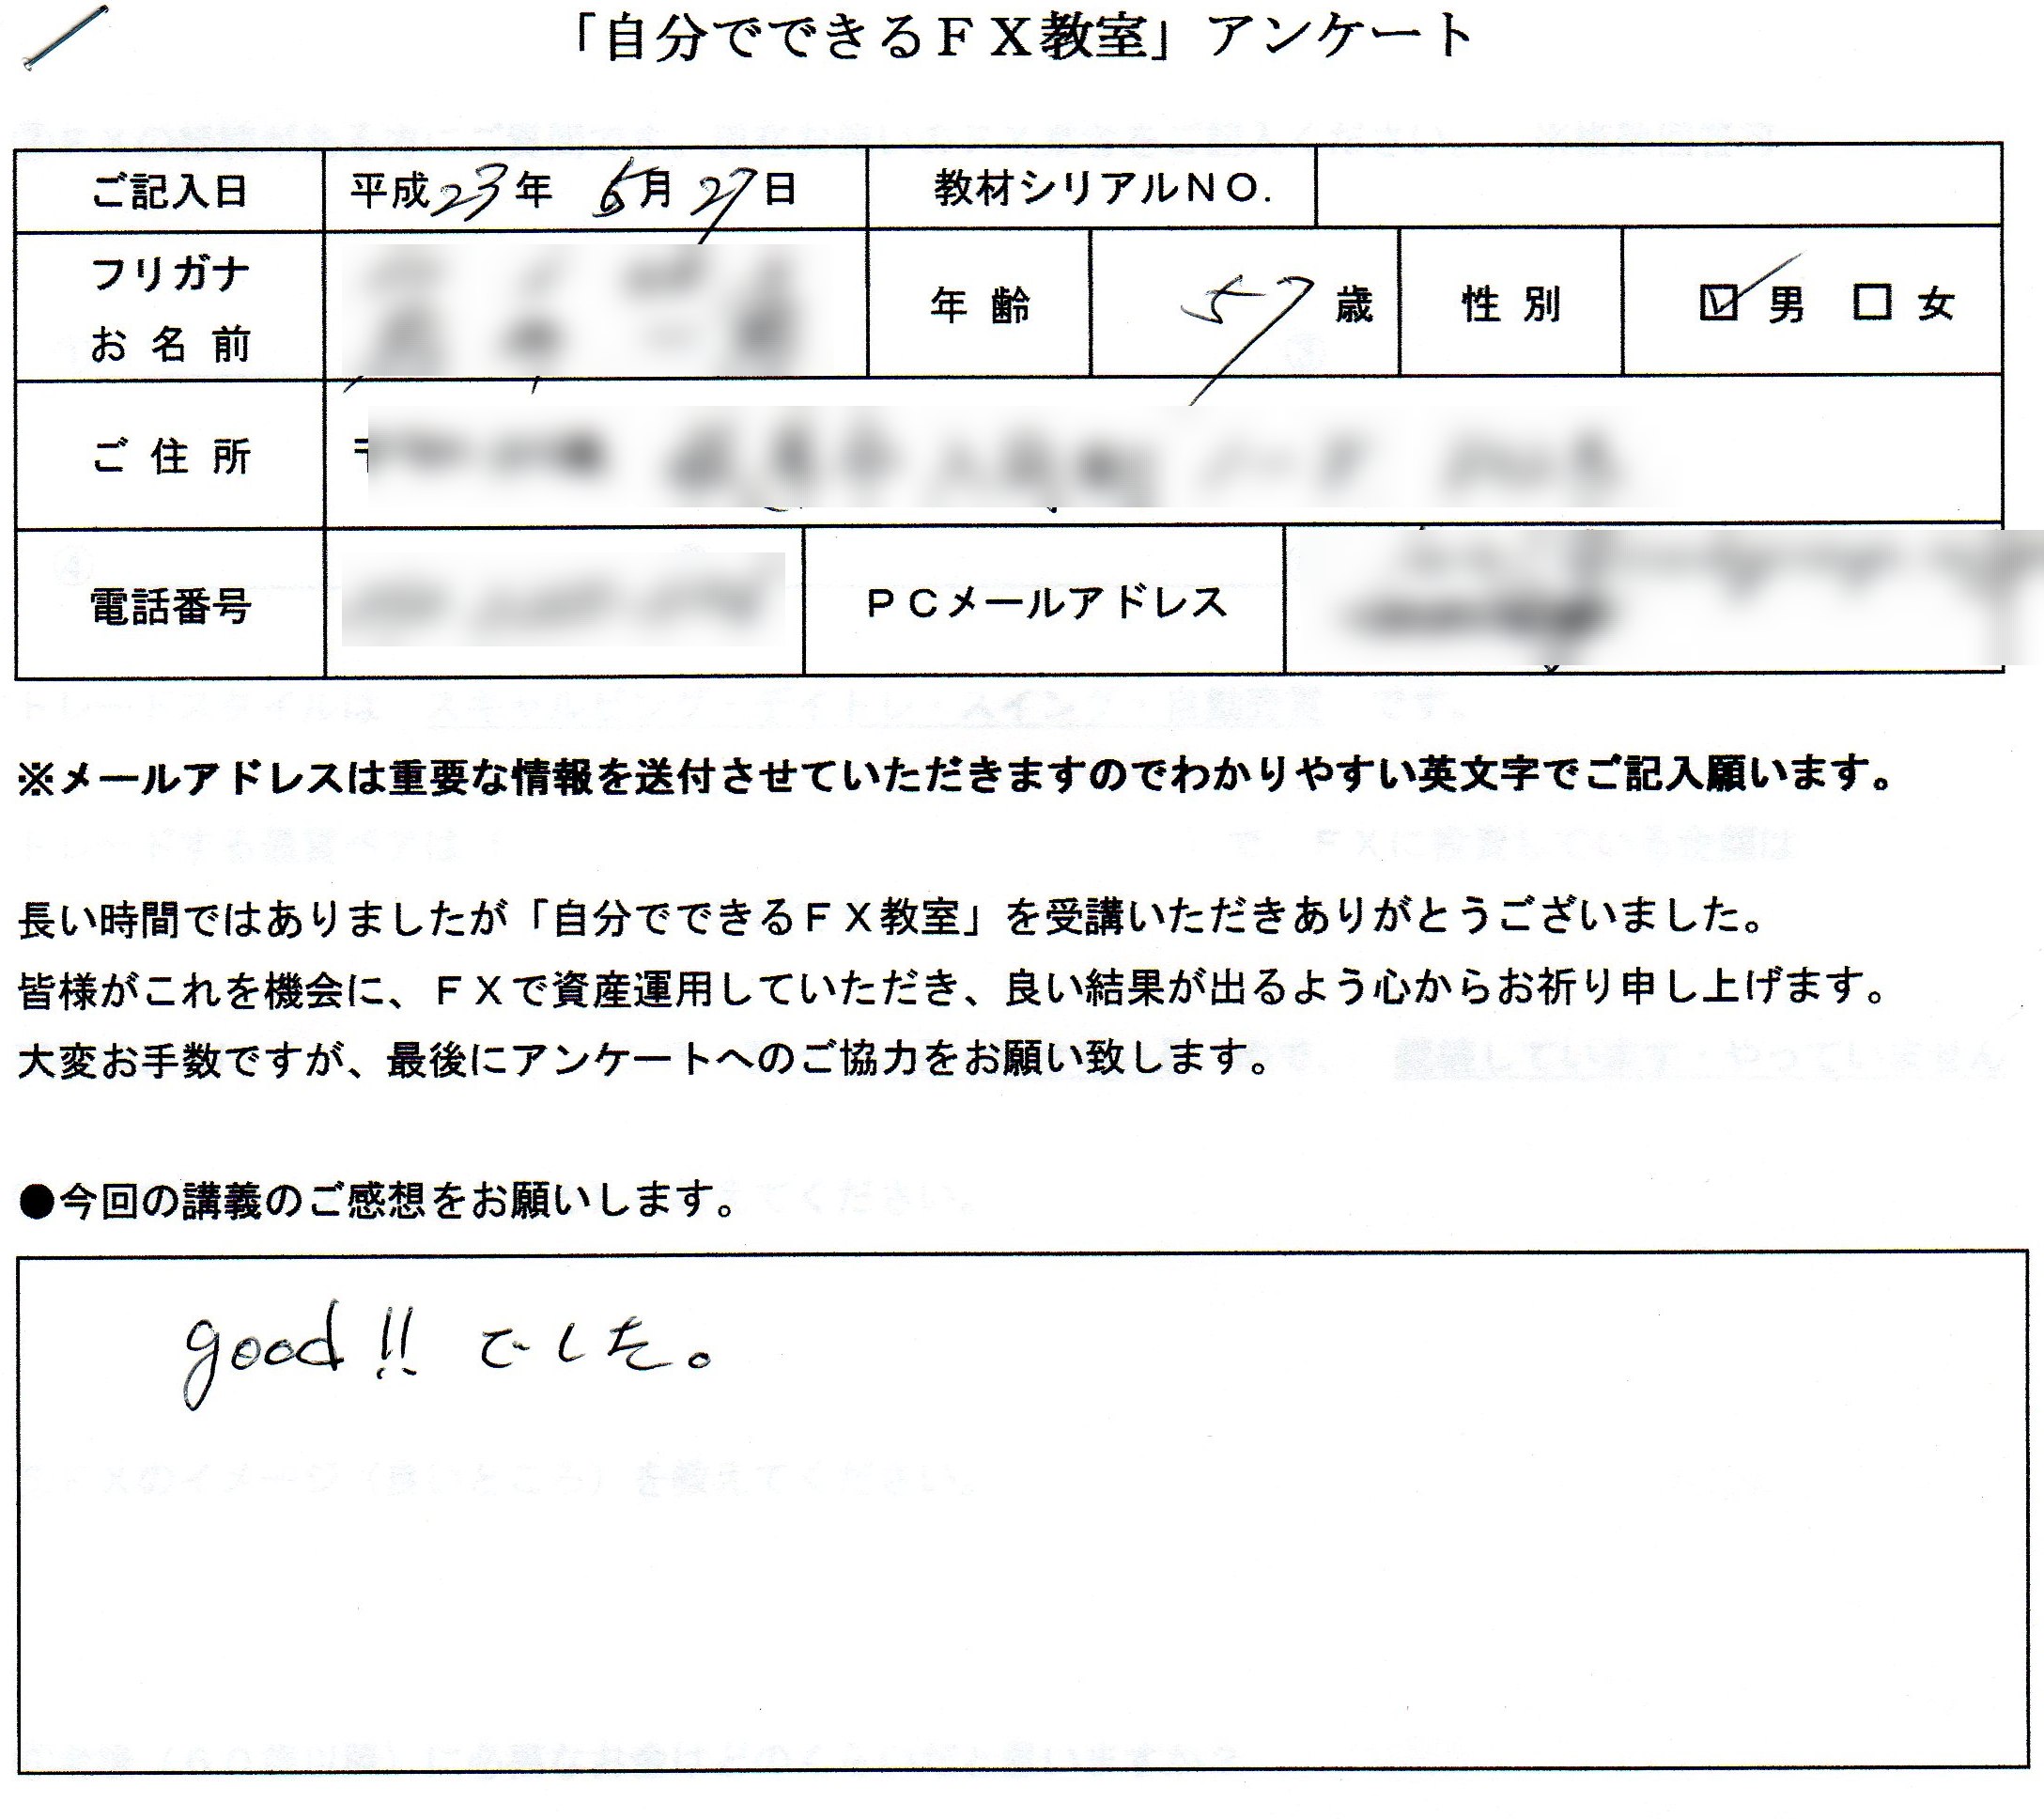 「自分でできるＦＸ教室」アンケート
ご記入日 平成23年 5月27日 教材シリアルＮＯ.
フリガナ
お名前 年齢 57歳 性別 ☑男 □女
ご住所 〒
電話番号 ＰＣメールアドレス
※メールアドレスは重要な情報を送付させていただきますのでわかりやすい英文字でご記入願います。
長い時間ではありましたが「自分でできるＦＸ教室」を受講いただきありがとうございました。
皆様がこれを機会に、ＦＸで資産運用していただき、良い結果が出るよう心からお祈り申し上げます。
大変お手数ですが、最後にアンケートへのご協力をお願い致します。
●今回の講義のご感想をお願いします。
good!! でした。